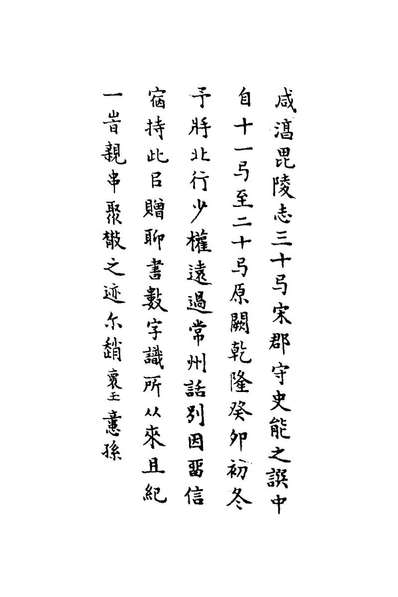 咸湻毘陵志三十弓宋郡守史能之譔中
自十一弓至二十弓原闕乾隆癸卯初冬
予將北行少權遠過常州話別因畱信
宿持此㠯贈聊書數字識所从來且紀
一旹親串聚散之迹尔趙褱玉意孫